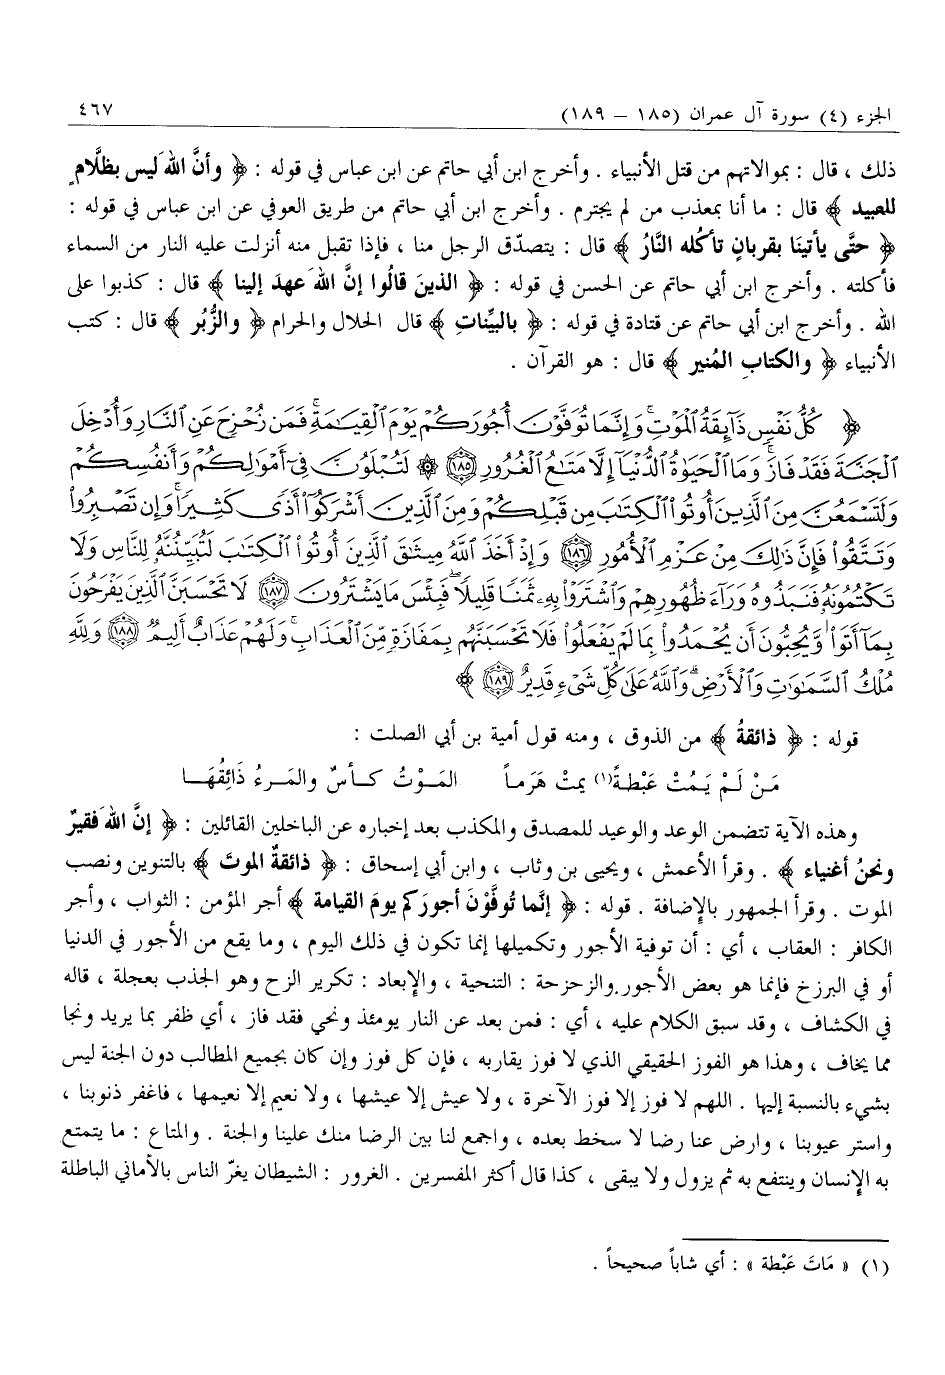 الجزء (٤) سورة آل عمران (١٨٥ – ١٨٩) ٤٦٧
ذلك ، قال : بموالاتهم من قتل الأنبياء . وأخرج ابن أبي حاتم عن ابن عباس في قوله : ﴿ وأنَّ اللهَ ليس بظلَّامٍ
للعبيد ﴾ قال : ما أنا بمعذب من لم يجترم . وأخرج ابن أبي حاتم من طريق العوفي عن ابن عباس في قوله :
﴿ حتَّى يأتينَا بقربانٍ تأكُله النَّارُ ﴾ قال : يتصدّق الرجل منا ، فإذا تقبل منه أنزلت عليه النار من السماء
فأكلته . وأخرج ابن أبي حاتم عن الحسن في قوله : ﴿ الذينَ قالُوا إنَّ اللهَ عهدَ إلينا ﴾ قال : كذبوا على
الله . وأخرج ابن أبي حاتم عن قتادة في قوله : ﴿ بالبيِّناتِ ﴾ قال الحلال والحرام ﴿ والزُّبُر ﴾ قال : كتب
الأنبياء ﴿ والكتابِ المُنير ﴾ قال : هو القرآن .
﴿ كُلُّ نَفْسٍ ذَآئِقَةُ ٱلْمَوْتِ ۗ وَإِنَّمَا تُوَفَّوْنَ أُجُورَكُمْ يَوْمَ ٱلْقِيَـٰمَةِ ۖ فَمَن زُحْزِحَ عَنِ ٱلنَّارِ وَأُدْخِلَ
ٱلْجَنَّةَ فَقَدْ فَازَ ۗ وَمَا ٱلْحَيَوٰةُ ٱلدُّنْيَآ إِلَّا مَتَـٰعُ ٱلْغُرُورِ ١٨٥ ۞ لَتُبْلَوُنَّ فِىٓ أَمْوَٰلِكُمْ وَأَنفُسِكُمْ
وَلَتَسْمَعُنَّ مِنَ ٱلَّذِينَ أُوتُوا۟ ٱلْكِتَـٰبَ مِن قَبْلِكُمْ وَمِنَ ٱلَّذِينَ أَشْرَكُوٓا۟ أَذًى كَثِيرًا ۚ وَإِن تَصْبِرُوا۟
وَتَتَّقُوا۟ فَإِنَّ ذَٰلِكَ مِنْ عَزْمِ ٱلْأُمُورِ ١٨٦ وَإِذْ أَخَذَ ٱللَّهُ مِيثَـٰقَ ٱلَّذِينَ أُوتُوا۟ ٱلْكِتَـٰبَ لَتُبَيِّنُنَّهُۥ لِلنَّاسِ وَلَا
تَكْتُمُونَهُۥ فَنَبَذُوهُ وَرَآءَ ظُهُورِهِمْ وَٱشْتَرَوْا۟ بِهِۦ ثَمَنًا قَلِيلًا ۖ فَبِئْسَ مَا يَشْتَرُونَ ١٨٧ لَا تَحْسَبَنَّ ٱلَّذِينَ يَفْرَحُونَ
بِمَآ أَتَوا۟ وَّيُحِبُّونَ أَن يُحْمَدُوا۟ بِمَا لَمْ يَفْعَلُوا۟ فَلَا تَحْسَبَنَّهُم بِمَفَازَةٍ مِّنَ ٱلْعَذَابِ ۖ وَلَهُمْ عَذَابٌ أَلِيمٌ ١٨٨ وَلِلَّهِ
مُلْكُ ٱلسَّمَـٰوَٰتِ وَٱلْأَرْضِ ۗ وَٱللَّهُ عَلَىٰ كُلِّ شَىْءٍ قَدِيرٌ ١٨٩ ﴾
قوله : ﴿ ذائقةُ ﴾ من الذوق ، ومنه قول أمية بن أبي الصلت :
مَنْ لَمْ يَمُتْ عَبْطةً(١) يمتْ هَرَماً المَوْتُ كأسٌ والمَرءُ ذَائِقُهَا
وهذه الآية تتضمن الوعد والوعيد للمصدق والمكذب بعد إخباره عن الباخلين القائلين : ﴿ إنَّ اللهَ فقيرٌ
ونحنُ أغنياء ﴾ . وقرأ الأعمش ، ويحيى بن وثاب ، وابن أبي إسحاق : ﴿ ذائقةٌ الموتَ ﴾ بالتنوين ونصب
الموت . وقرأ الجمهور بالإضافة . قوله : ﴿ إنَّما تُوفَّوْنَ أجورَكم يومَ القيامة ﴾ أجر المؤمن : الثواب ، وأجر
الكافر : العقاب ، أي : أن توفية الأجور وتكميلها إنما تكون في ذلك اليوم ، وما يقع من الأجور في الدنيا
أو في البرزخ فإنما هو بعض الأجور.والزحزحة : التنحية ، والإبعاد : تكرير الزح وهو الجذب بعجلة ، قاله
في الكشاف ، وقد سبق الكلام عليه ، أي : فمن بعد عن النار يومئذ ونحي فقد فاز ، أي ظفر بما يريد ونجا
مما يخاف ، وهذا هو الفوز الحقيقي الذي لا فوز يقاربه ، فإن كل فوز وإن كان بجميع المطالب دون الجنة ليس
بشيء بالنسبة إليها . اللهم لا فوز إلا فوز الآخرة ، ولا عيش إلا عيشها ، ولا نعيم إلا نعيمها ، فاغفر ذنوبنا ،
واستر عيوبنا ، وارض عنا رضا لا سخط بعده ، واجمع لنا بين الرضا منك علينا والجنة . والمتاع : ما يتمتع
به الإنسان وينتفع به ثم يزول ولا يبقى ، كذا قال أكثر المفسرين . الغرور : الشيطان يغرّ الناس بالأماني الباطلة
(١) « مَاتَ عَبْطة » : أي شاباً صحيحاً .